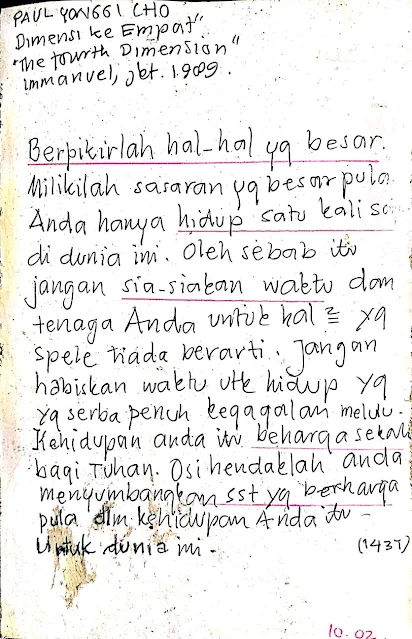 PAUL YONGGI CHO
Dimensi ke Empat"
"The fourth Dimension"
Immanuel, jkt. 1989.
Berpikirlah hal-hal yg besar.
Milikilah sasaran yg besar pula
Anda hanya hidup satu kali sa
di dunia ini. Oleh sebab itu
jangan sia-siakan waktu dan
tenaga Anda untuk hal ² yg
spele tiada berarti. Jangan
habiskan waktu utk hidup yg
yg serba penuh kegagalan melulu.
Kehidupan anda itu beharga sekali
bagi Tuhan. Osi hendaklah anda
menyumbangkan sst yg berharga
pula dlm kehidupan Anda itu -
Untuk dunia ini.
(1437)
10.02